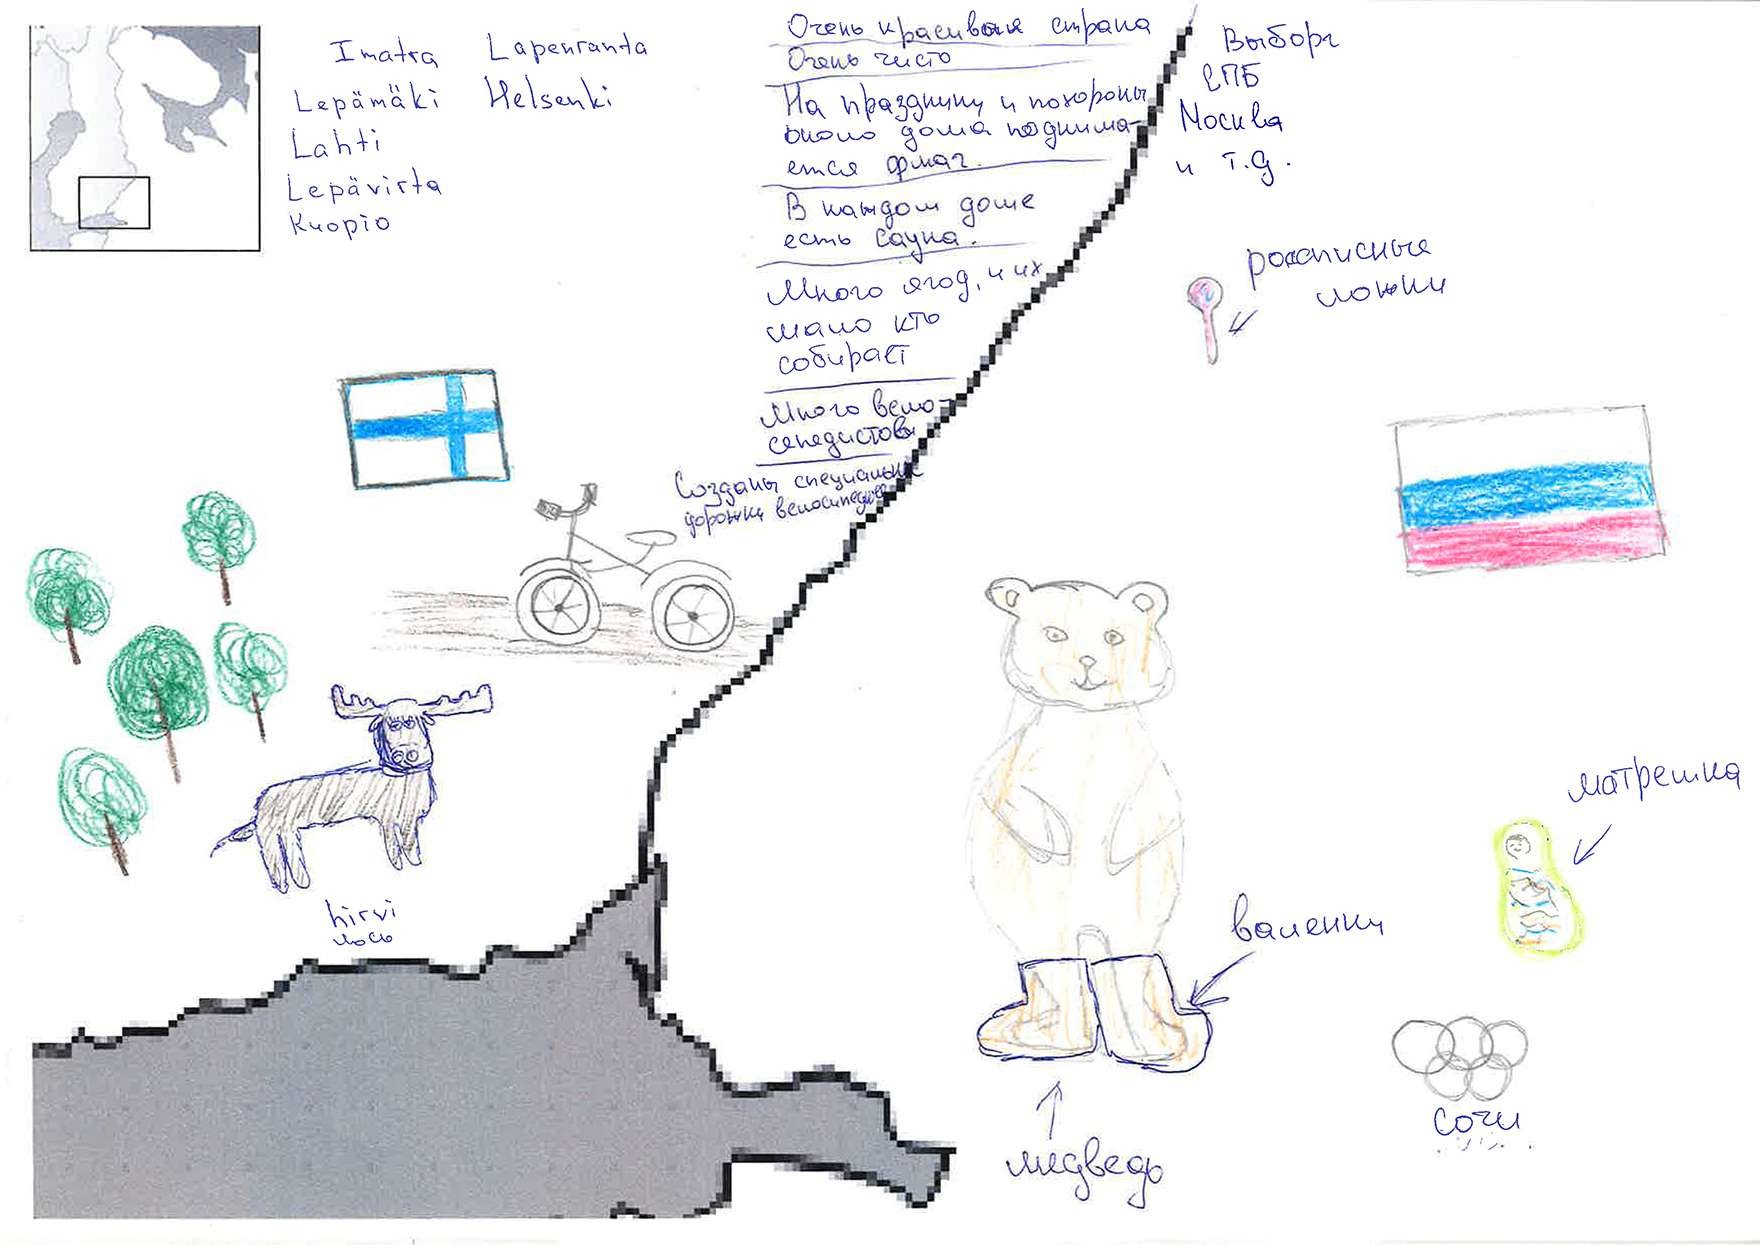 Imatra Lapenranta
Lepämäki Helsenki
Lahti
Lepävirta
Kuopio
Очень красивая страна
Очень чисто
На праздники и похороны
около дома поднима-
ется флаг.
В каждом доме
есть сауна.
Много ягод, и их
мало кто
собирает
Много вело-
сепедистов
Созданы специальн
дорожки
Выборг
СПБ
Москва
и т.д.
росписные
ложки
матрешка
валенки
медведь
Сочи
hirvi
лось